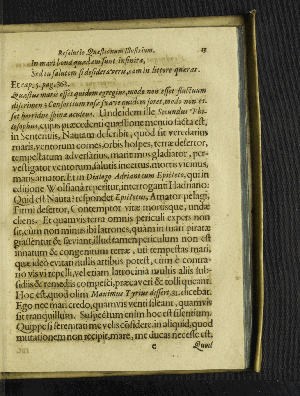 Resolutio Quæstionum Illustrium. 13
In mari bona quædam sunt infinita,
Sed tu salutem si desideraveris, eam in littore quæras.
Et cap. 5. pag. 368.
Quæstus maris esset quidem egregius, modo non esset fluctuum
discrimen: Consortium rosæ suave quidem foret, modo non es-
set horridus spinæ aculeus. Undeidem ille Secundus Phi-
losophus, cujus præcedenti quæstione mentio facta est,
in Sententiis, Nautam describit, quod sit veredarius
maris, ventorum comes, orbis hospes, terræ desertor,
tempestatum adversarius, marinus gladiator, per-
vestigator ventorum, salutis incertus, mortis vicinus,
maris amator. Et in Dialogo Adriani cum Epicteto, qui in
editione Wolfiana reperitur, interroganti Hadriano:
Quid est Nauta? respondet Epictetus, Amator pelagi,
Firmi desertor, Contemptor vitæ mortisque, undæ
cliens. Et quamvis terra omnis periculi expers non
sit, cum non minus ibi latrones, quàm in mari piratæ
grassentur & sæviant, illud tamen periculum non est
innatum & congenitum terræ, uti tempestas mari,
quæ ideò evitari nullis artibus potest, cùm è contra-
rio vis vi repelli, vel etiam latrocinia multis aliis sub-
sidiis & remediis compesci, præcaveri & tolli queant.
Hoc est, quod olim Maximus Tyrius dissert. 31. dicebat.
Ego nec mari credo, quamvis venti sileant, quamvis
sit tranquillum. Suspectum enim hoc est silentium.
Quippe si serenitati me velis confidere, in aliquid, quod
mutationem non recipit, mare, me ducas necesse est,
C Quod